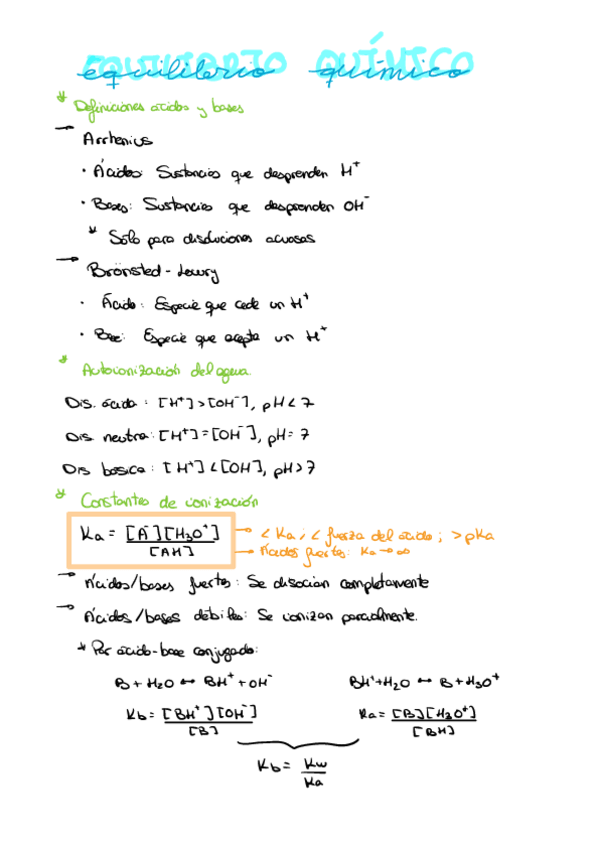 EQUILIBRIO QUÍMICO
equilibrio químico
* Definiciones ácidos y bases
→ Arrhenius
· Ácidos: Sustancias que desprenden H⁺
· Bases: Sustancias que desprenden OH⁻
* Sólo para disoluciones acuosas
→ Brönsted-Lowry
· Ácido: Especie que cede un H⁺
· Base: Especie que acepta un H⁺
* Autoionización del agua
Dis. ácida: [H⁺]>[OH⁻], pH<7
Dis neutra: [H⁺]=[OH⁻], pH=7
Dis básica: [H⁺]<[OH], pH>7
* Constantes de ionización
Ka = [A⁻][H₃O⁺] / [AH] → < Ka; < fuerza del ácido; > pKa
→ Ácidos fuertes: Ka→∞
→ Ácidos/bases fuertes: Se disocian completamente
→ Ácidos/bases débiles: Se ionizan parcialmente.
* Par ácido-base conjugado:
B + H₂O ↔ BH⁺ + OH⁻ BH⁺+H₂O ↔ B + H₃O⁺
Kb = [BH⁺][OH⁻] / [B] Ka = [B][H₃O⁺] / [BH]
Kb = Kw / Ka